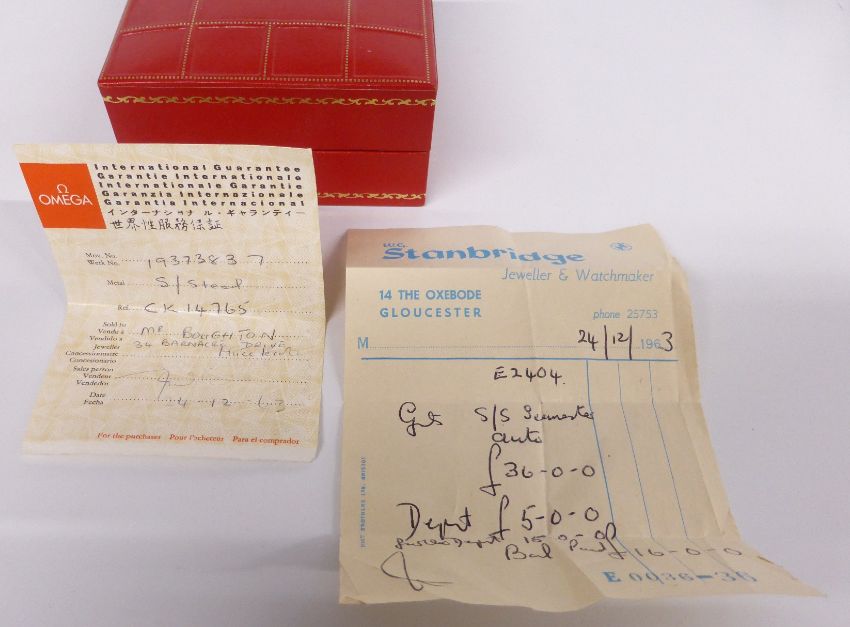 Ω
OMEGA
International Guarantee
Garantie Internationale
Internationale Garantie
Garanzia Internazionale
Garantia Internacional
インターナショナル・ギャランティー
世界性服務保証
Mov. No.
Werk No. 19373837
Metal S/Steel
Ref. CK 14765
Sold to
Vendu à
Vendido a MR BOUGHTON
Jeweller 34 BARNACRE DRIVE
Concessionnaire
Concesionario
Sales person
Vendeur
Vendedor
Date
Fecha 4 12 63
For the purchaser Pour l'acheteur Para el comprador
W.G.
Stanbridge
Jeweller & Watchmaker
14 THE OXEBODE
GLOUCESTER
phone 25753
M 24/12/1963
E2404.
Gts S/S Seamaster
auto
£36-0-0
Deposit £5-0-0
Deposit 15-0-0
Bal Paid £16-0-0
E 0036-36